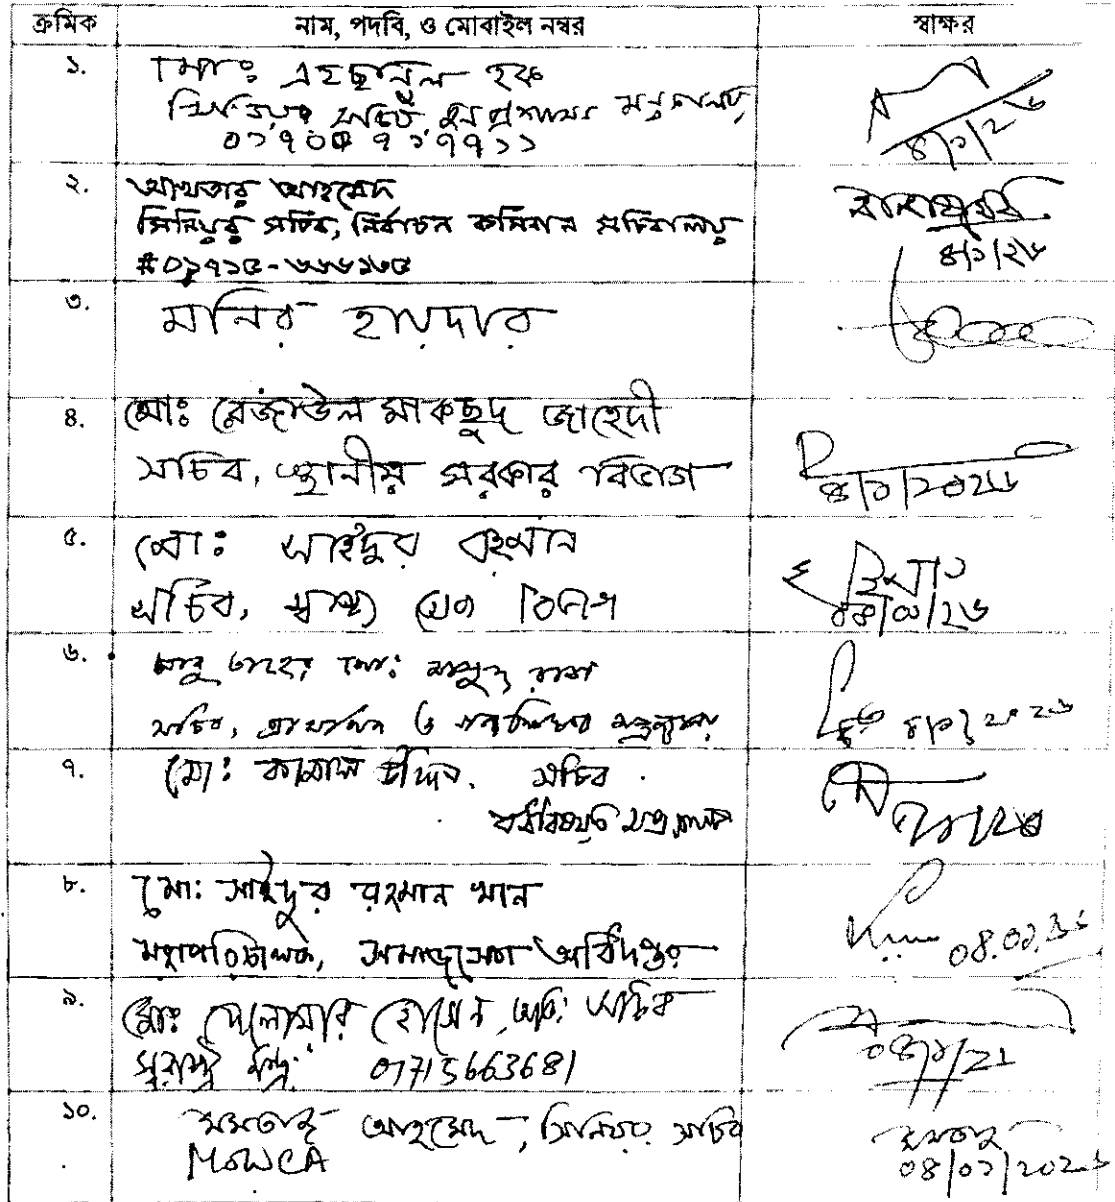 ক্রমিক নাম, পদবি, ও মোবাইল নম্বর স্বাক্ষর
১. মোঃ এহছানুল হক
সিনিয়র সচিব, জনপ্রশাসন মন্ত্রণালয়,
৪/১/২৬
২. আখতার আহমেদ
সিনিয়র সচিব, নির্বাচন কমিশন সচিবালয়
#০১৭১৫-৬৬৬১৬৫
৪/১/২৬
৩. মনির হায়দার
৪. মোঃ রেজাউল মাকছুদ জাহেদী
সচিব, স্থানীয় সরকার বিভাগ
৪/১/২০২৬
৫. মোঃ সাইদুর রহমান
সচিব, স্বাস্থ্য সেবা বিভাগ
৬. আবু তাহের মোঃ মাসুদ রানা
সচিব, প্রাথমিক ও গণশিক্ষা মন্ত্রণালয়
৪/১/২০২৬
৭. মোঃ কামাল উদ্দিন, সচিব
ধর্মবিষয়ক মন্ত্রণালয়
৮. মোঃ সাইদুর রহমান খান
মহাপরিচালক, সমাজসেবা অধিদপ্তর
৯. মোঃ দেলোয়ার হোসেন, অতি: সচিব
স্বরাষ্ট্র মন্ত্র: 01715663681
১০. মমতাজ আহমেদ, সিনিয়র সচিব
MOWCA
মমতাজ
০৪/০১/২০২৬